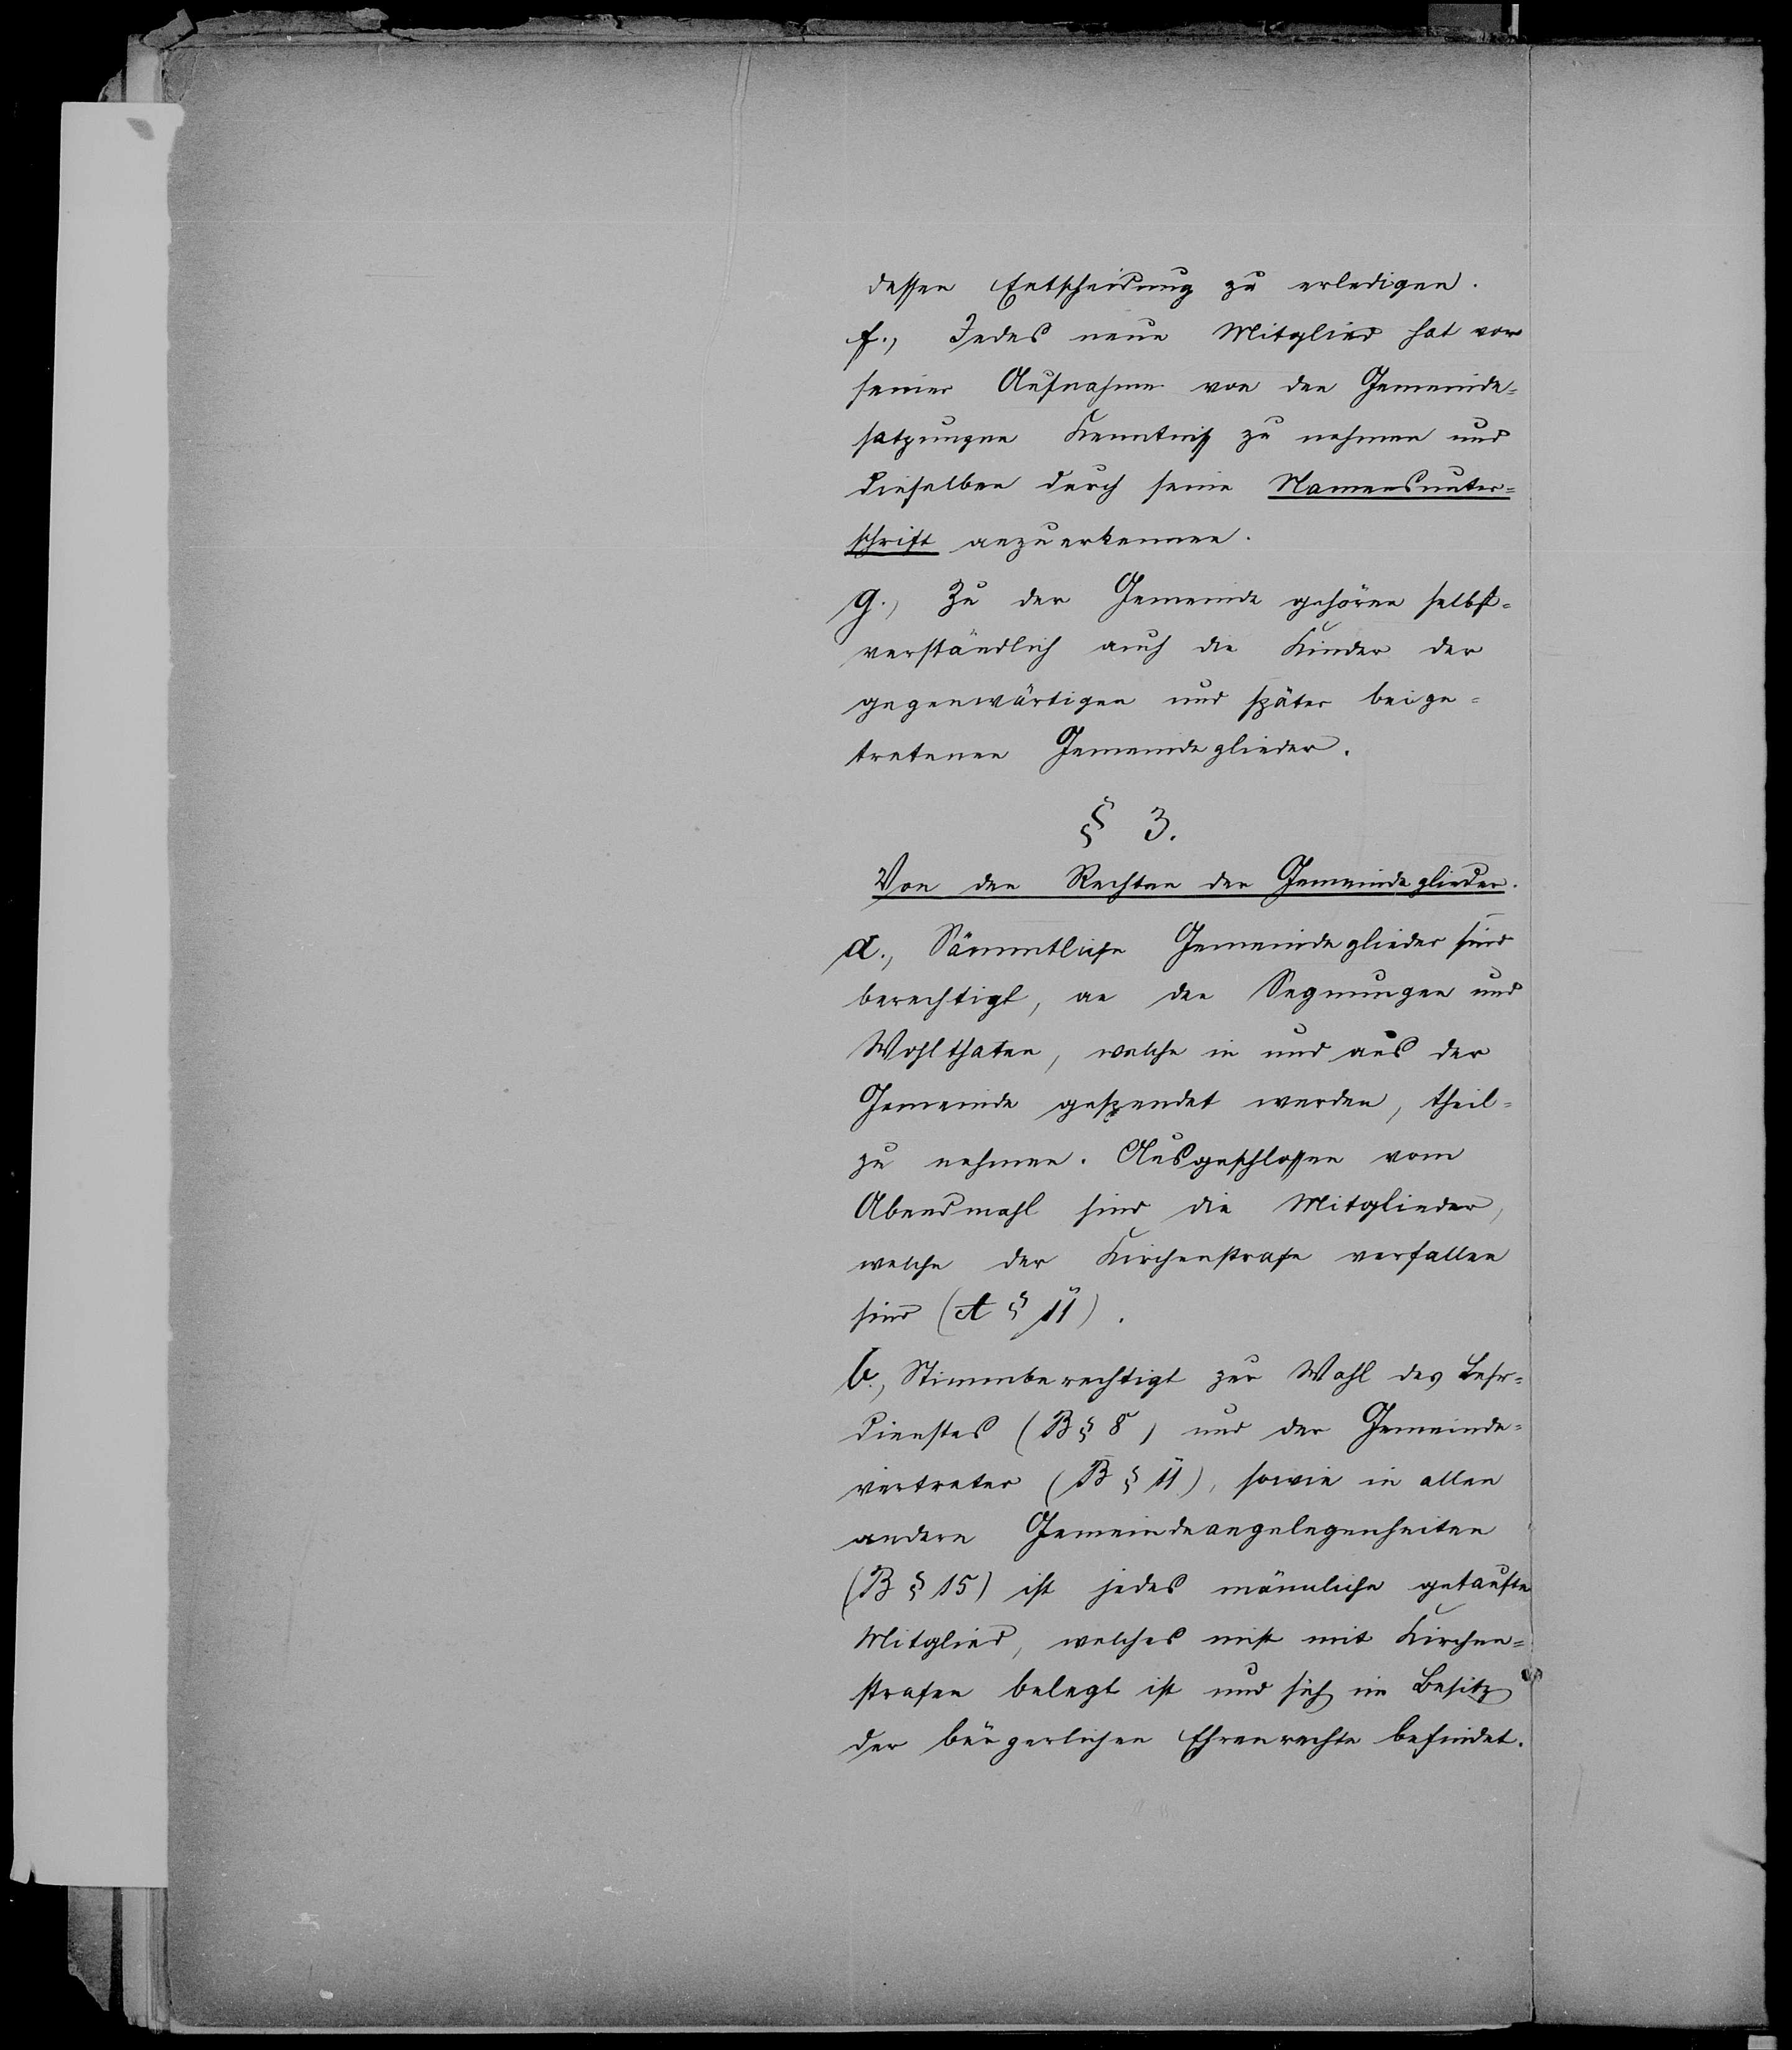 dessen Entscheidung zu erledigen.
f., Jedes neue Mitglied hat vor
seiner Aufnahme von den Gemeinde-
satzungen Kenntniß zu nehmen und
dieselben durch seine Namensunter-
schrift anzuerkennen.
g., Zu der Gemeinde gehören selbst-
verständlich auch die Kinder der
gegenwärtigen und später beige-
tretenen Gemeindeglieder.
§ 3.
Von den Rechten der Gemeindeglieder.
a., Sämmtliche Gemeindeglieder sind
berechtigt, an den Segnungen und
Wohlthaten, welche in und aus der
Gemeinde gespendet werden, theil-
zu nehmen. Ausgeschlossen vom
Abendmahl sind die Mitglieder,
welche der Kirchenstrafe verfallen
sind (A § 11).
b., Stimmberechtigt zur Wahl des Lehr-
dienstes (B § 8) und der Gemeinde-
vertreter (B § 11), sowie in allen
andern Gemeindeangelegenheiten
(B § 15) ist jedes männliche getaufte
Mitglied, welches nicht mit Kirchen-
strafen belegt ist und sich im Besitz
der bürgerlichen Ehrenrechte befindet.